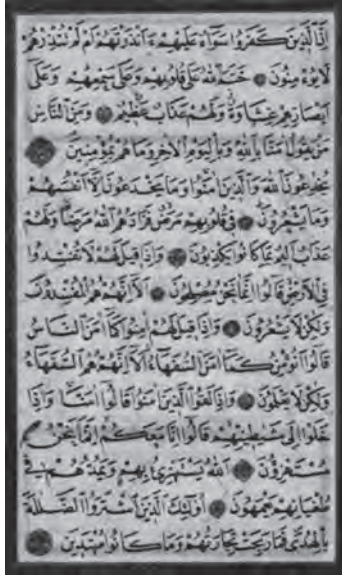 إِنَّ الَّذِينَ كَفَرُوا سَوَاءٌ عَلَيْهِمْ ءَأَنذَرْتَهُمْ أَمْ لَمْ تُنذِرْهُمْ
لَا يُؤْمِنُونَ خَتَمَ اللَّهُ عَلَىٰ قُلُوبِهِمْ وَعَلَىٰ سَمْعِهِمْ وَعَلَىٰ
أَبْصَارِهِمْ غِشَاوَةٌ وَلَهُمْ عَذَابٌ عَظِيمٌ وَمِنَ النَّاسِ
مَن يَقُولُ آمَنَّا بِاللَّهِ وَبِالْيَوْمِ الْآخِرِ وَمَا هُم بِمُؤْمِنِينَ
يُخَادِعُونَ اللَّهَ وَالَّذِينَ آمَنُوا وَمَا يَخْدَعُونَ إِلَّا أَنفُسَهُمْ
وَمَا يَشْعُرُونَ فِي قُلُوبِهِم مَّرَضٌ فَزَادَهُمُ اللَّهُ مَرَضًا وَلَهُمْ
عَذَابٌ أَلِيمٌ بِمَا كَانُوا يَكْذِبُونَ وَإِذَا قِيلَ لَهُمْ لَا تُفْسِدُوا
فِي الْأَرْضِ قَالُوا إِنَّمَا نَحْنُ مُصْلِحُونَ أَلَا إِنَّهُمْ هُمُ الْمُفْسِدُونَ
وَلَٰكِن لَّا يَشْعُرُونَ وَإِذَا قِيلَ لَهُمْ آمِنُوا كَمَا آمَنَ النَّاسُ
قَالُوا أَنُؤْمِنُ كَمَا آمَنَ السُّفَهَاءُ أَلَا إِنَّهُمْ هُمُ السُّفَهَاءُ
وَلَٰكِن لَّا يَعْلَمُونَ وَإِذَا لَقُوا الَّذِينَ آمَنُوا قَالُوا آمَنَّا وَإِذَا
خَلَوْا إِلَىٰ شَيَاطِينِهِمْ قَالُوا إِنَّا مَعَكُمْ إِنَّمَا نَحْنُ
مُسْتَهْزِءُونَ اللَّهُ يَسْتَهْزِئُ بِهِمْ وَيَمُدُّهُمْ فِي
طُغْيَانِهِمْ يَعْمَهُونَ أُولَٰئِكَ الَّذِينَ اشْتَرَوُا الضَّلَالَةَ
بِالْهُدَىٰ فَمَا رَبِحَت تِّجَارَتُهُمْ وَمَا كَانُوا مُهْتَدِينَ